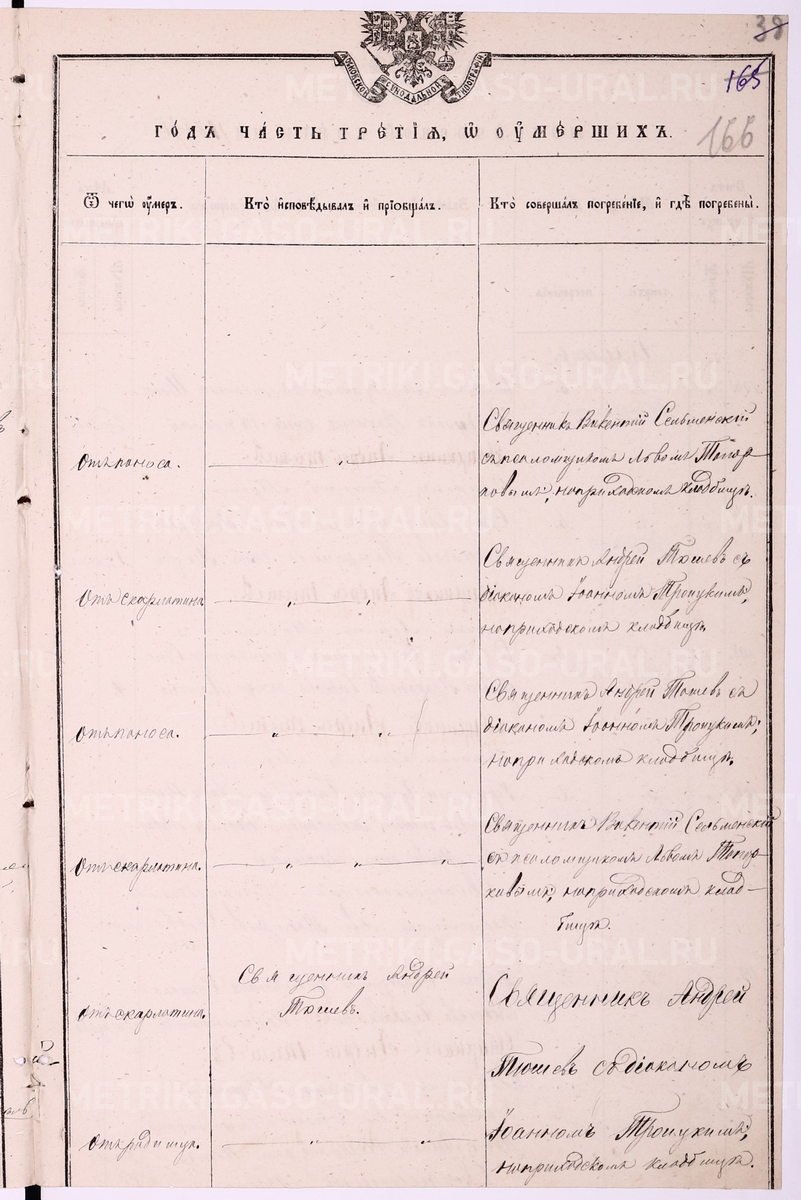 38
165
166
МОСКОВСКОЙ СѴНОДАЛЬНОЙ ТИПОГРАФІИ
ГО́ДЪ ЧА́СТЬ ТРЕ́ТІѦ, Ѡ҆ ОУ҆МЕ́РШИХЪ.
Ѿ чегѡ̀ оу҆́меръ.
Кто̀ и҆сповѣ́дывалъ и҆ приѻбща́лъ.
Кто̀ соверша́лъ погребе́нїе, и҆ гдѣ̀ погребены̀.
Отъ поноса.
Священникъ Викентій Сельменскій
съ псаломщикомъ Львомъ Топор-
ковымъ, на приходскомъ кладбищѣ.
Отъ скарлатина
Священникъ Андрей Тюшевъ съ
діакономъ Іоанномъ Тропукимъ,
на приходскомъ кладбищѣ.
Отъ поноса.
Священникъ Андрей Тюшевъ съ
діакономъ Іоанномъ Тропукимъ,
на приходскомъ кладбищѣ.
Отъ скарлатина.
Священникъ Викентій Сельменскій
съ псаломщикомъ Львомъ Топор-
ковымъ, на приходскомъ клад-
бищѣ.
Отъ скарлатина.
Священникъ Андрей
Тюшевъ.
Священникъ Андрей
Тюшевъ съ діакономъ
Отъ родимца.
Іоанномъ Тропукимъ,
на приходскомъ кладбищѣ.
METRIKI.GASO-URAL.RU